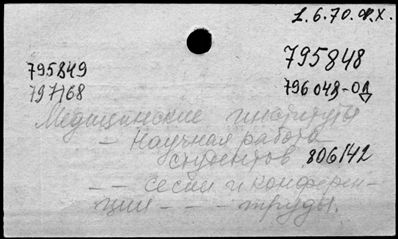 1.6.70.
795848
795849
797168
796048-ОД
Медицинские институты
— Научная работа
студентов 806142
— — сессии и конферен-
ции — — — труды.